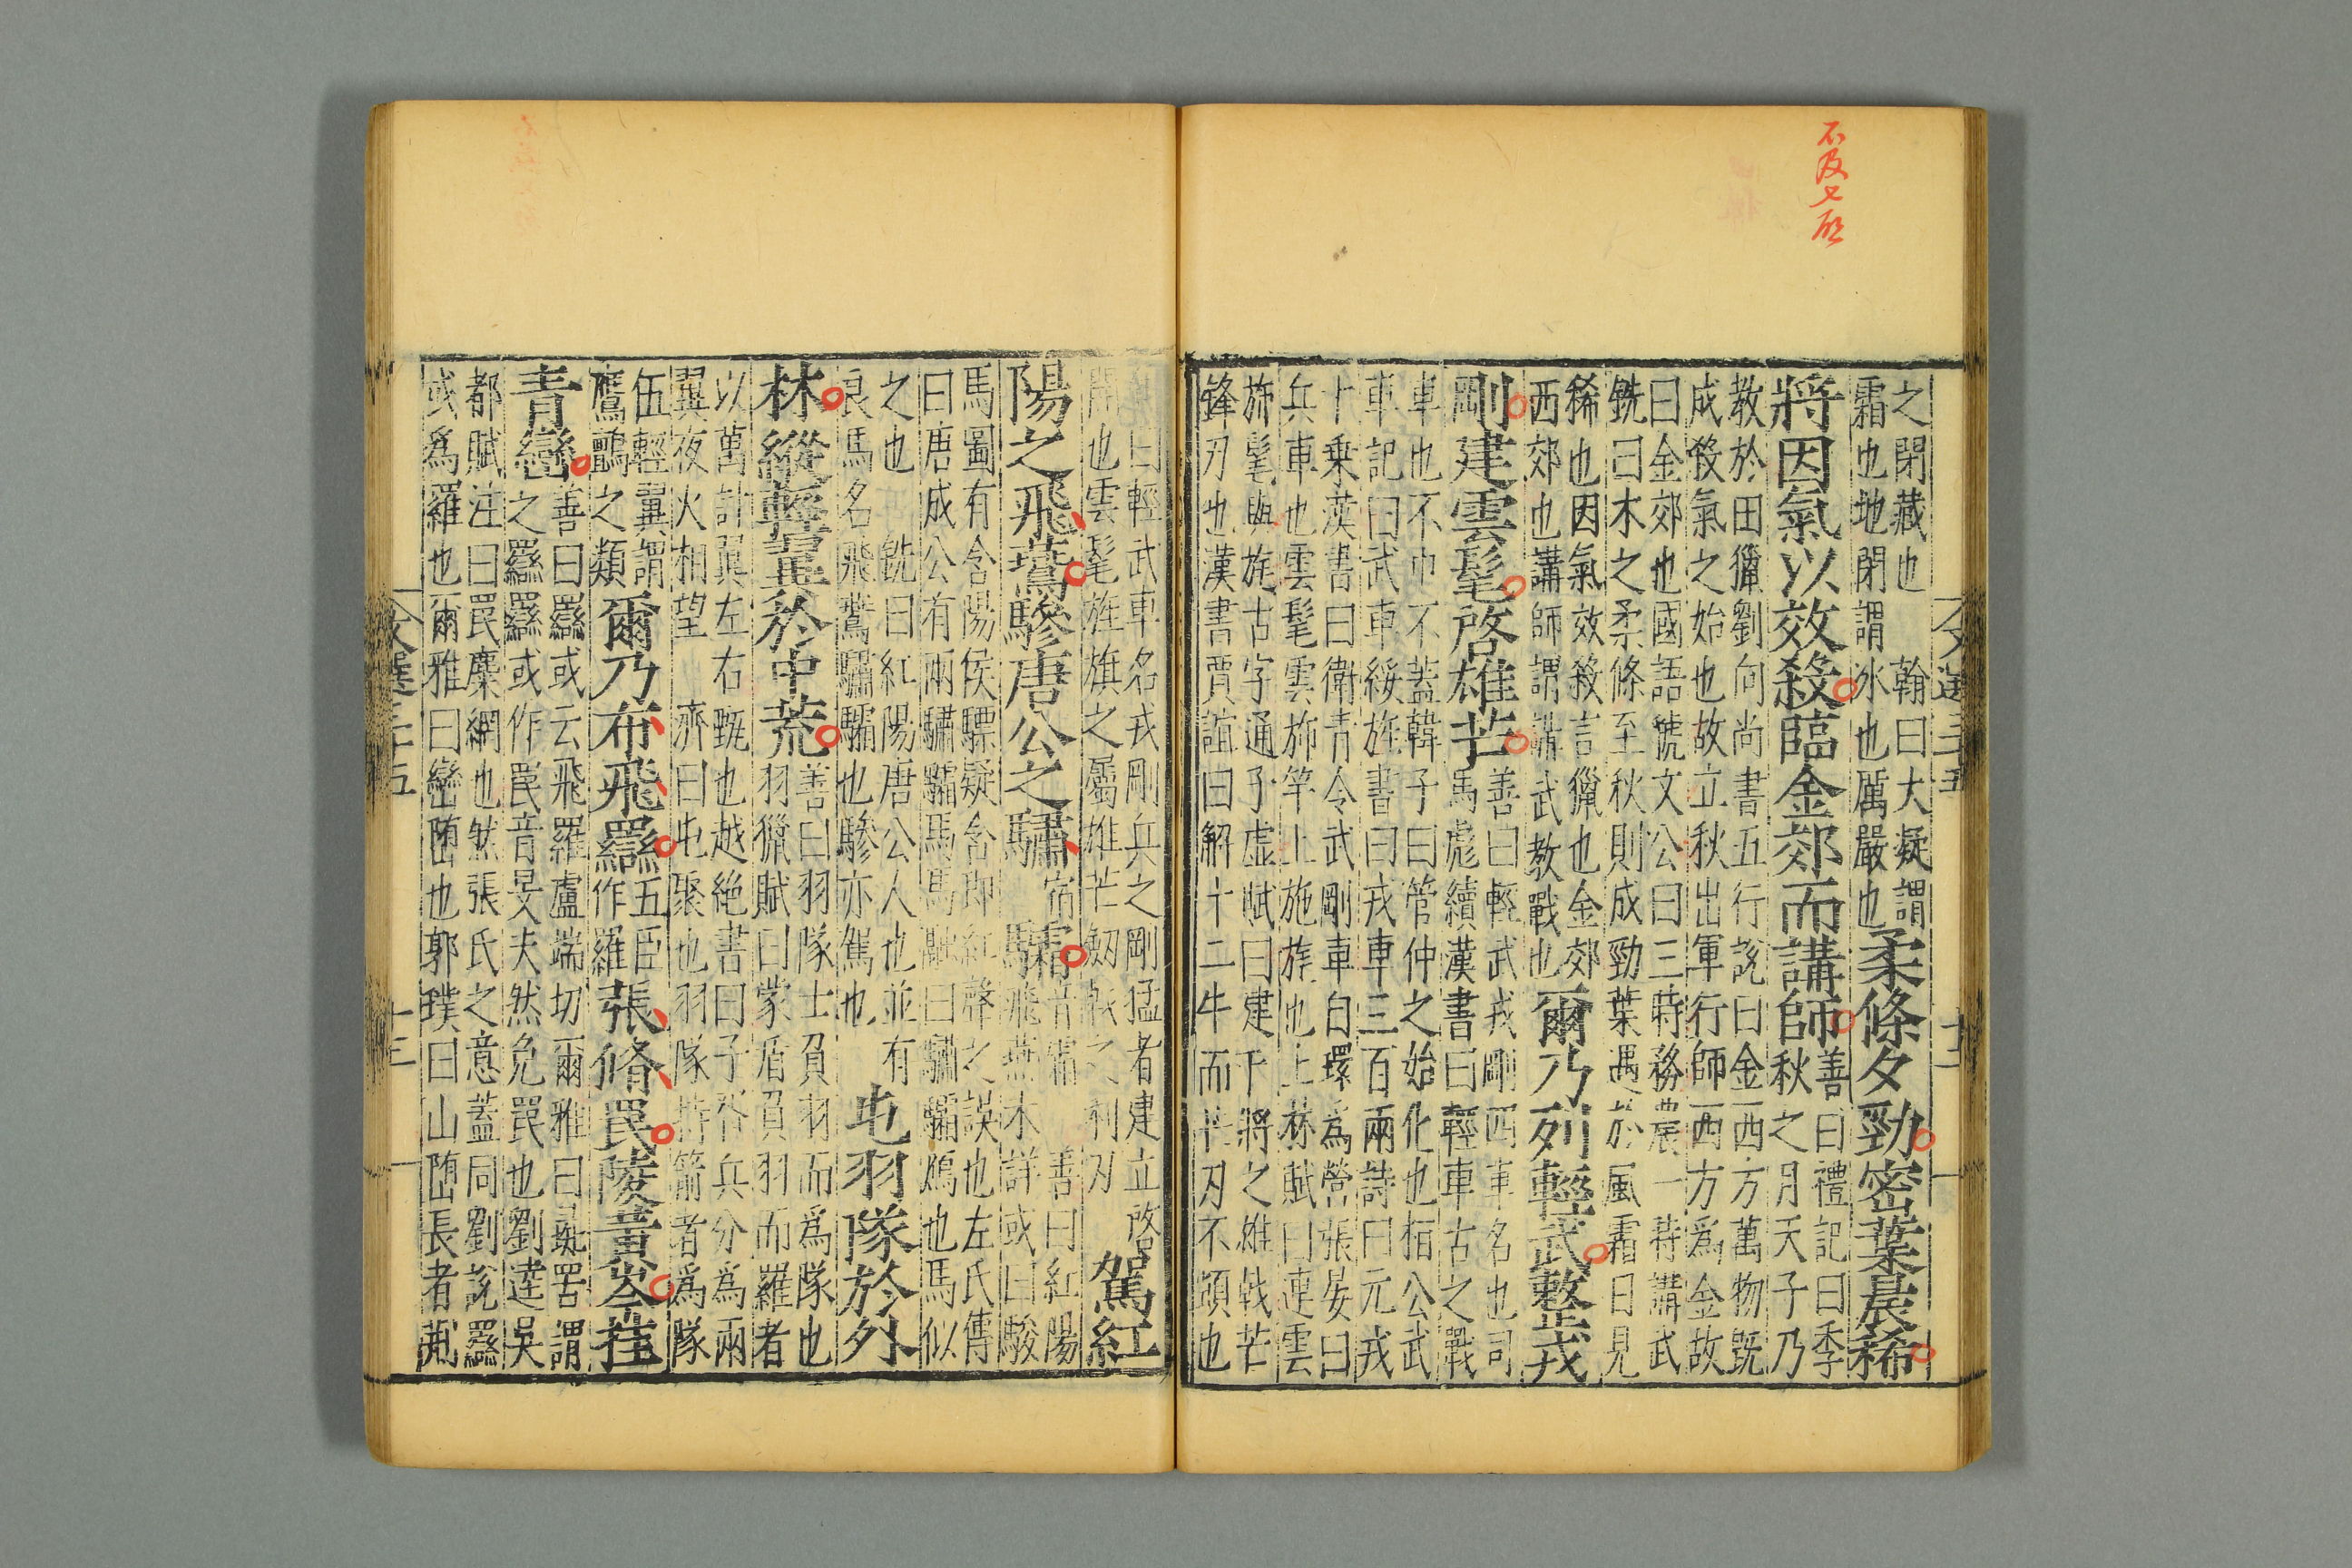 不及七啟
之閉藏也　翰曰大凝謂
霜也地閉謂冰也厲嚴也
柔條夕勁密葉晨稀
將因氣以效殺臨金郊而講師
善曰禮記曰季
秋之月天子乃
教於田獵劉向尚書五行說曰金西方萬物既
成殺氣之始也故立秋出軍行師西方爲金故
曰金郊也國語虢文公曰三時務農一時講武
銑曰木之柔條至秋則成勁葉遇於風霜日見
稀也因氣效殺言獵也金郊
西郊也講師謂講武教戰也
爾乃列輕武整戎
剛建雲髦啓雄芒
善曰輕武戎剛四車名也司
馬彪續漢書曰輕車古之戰
車也不巾不蓋韓子曰管仲之始化也桓公武
車記曰武車綏旌書曰戎車三百兩詩曰元戎
十乘漢書曰衛青令武剛車自環爲營張晏曰
兵車也雲髦雲旆竿上施旄也上林賦曰連雲
旆髦與旄古字通子虛賦曰建干將之雄戟芒
鋒刃也漢書賈誼曰解十二牛而芒刃不頓也
文選三十五　十二
曰輕武車名戎剛兵之剛猛者建立啓
開也雲髦旌旗之屬雄芒劒戟之利刃
駕紅
陽之飛鷰驂唐公之驌驦
宿
音霜
善曰紅陽
飛燕未詳或曰駿
馬圖有含陽侯驃疑含卽紅聲之誤也左氏傳
曰唐成公有兩驌驦馬馬融曰驌驦鴈也馬似
之也　銑曰紅陽唐公人也並有
良馬名飛鷰驌驦也驂亦駕也
屯羽隊於外
林縱輕翼於中荒
善曰羽隊士負羽而爲隊也
羽獵賦曰蒙盾負羽而羅者
以萬計翼左右甄也越絕書曰子胥兵分爲兩
翼夜火相望　濟曰屯聚也羽隊持箭者爲隊
伍輕翼謂
鷹鸇之類
爾乃布飛羉
五臣
作羅
張脩罠陵黃岑挂
青巒
善曰羉或云飛羅盧端切爾雅曰彘罟謂
之羉羉或作罠音旻夫然免罠也劉逵吳
都賦注曰罠麋網也然張氏之意蓋同劉說羉
或爲羅也爾雅曰巒墮也郭璞曰山墮長者荊
文選三十五　十三